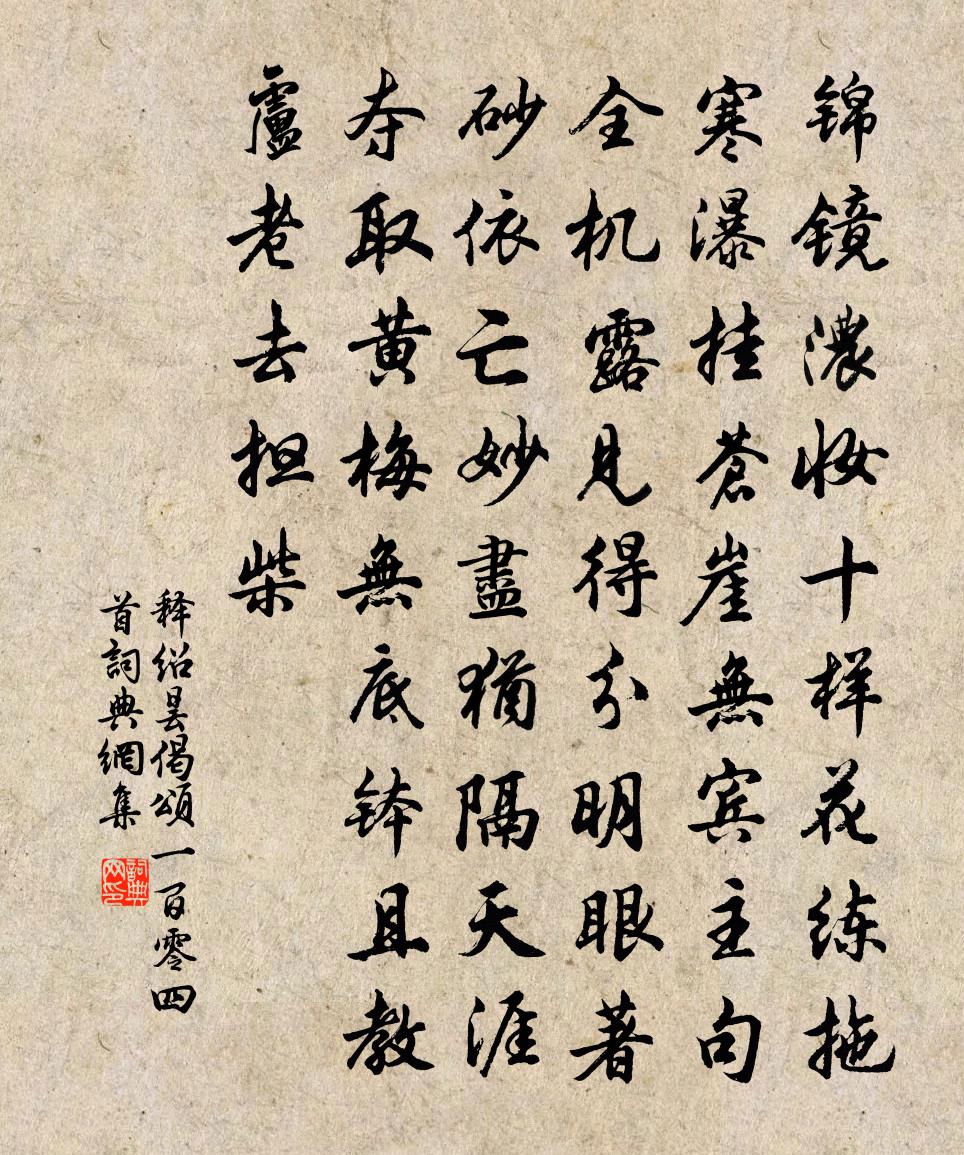 锦镜濃妆十样花练拖
寒瀑挂苍崖無宾主句
全机露見得分明眼著
砂依亡妙盡猶隔天涯
夺取黄梅無底钵且教
盧老去担柴
释绍昙偈頌一百零四
首詞典網集
詞典
网印